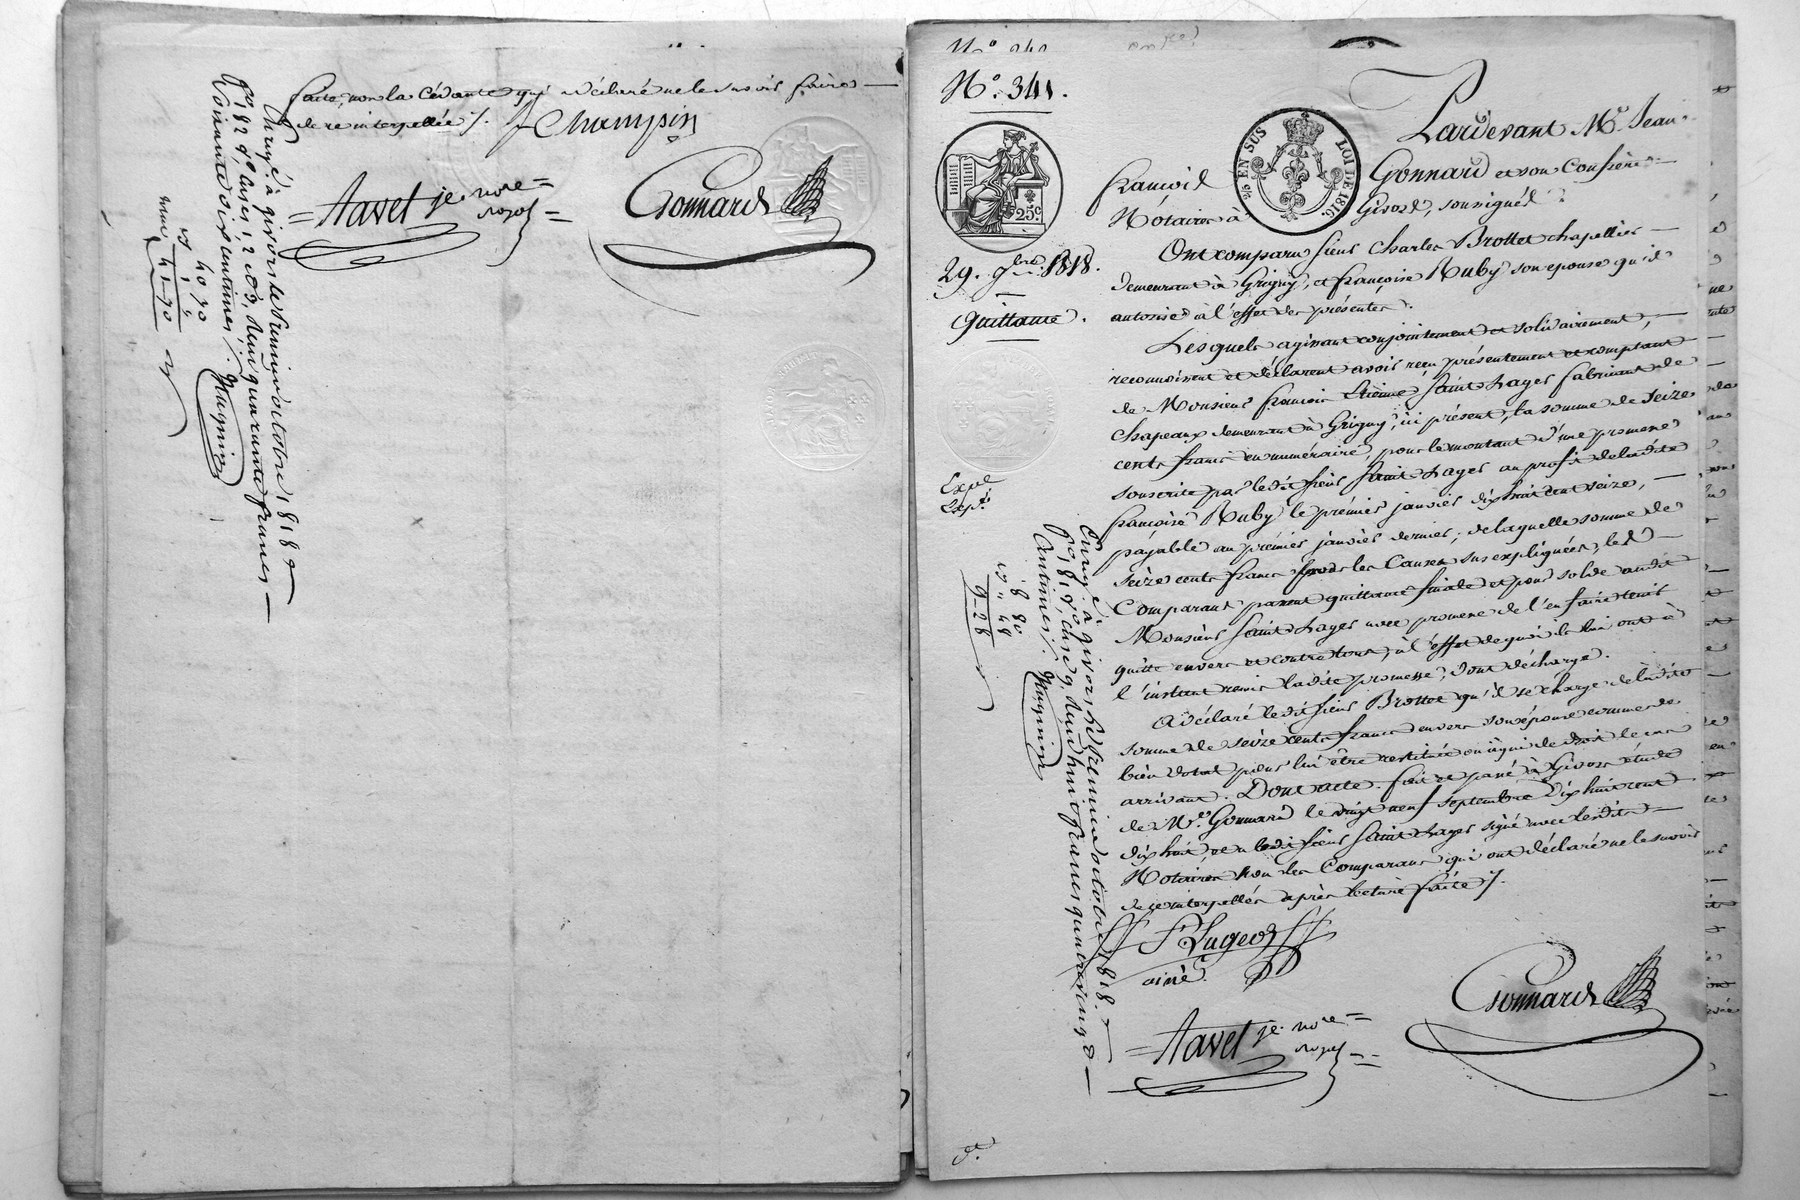 faite, non la Cédante qui a déclaré ne le savoir faire —
de ce interpellée /.
J Champin
= Favel je. nore =
royal =
Gonnard
Enregé à givors le premier octobre 1818 fo
182 ro cases 1 2 et 3, reçu quarante francs
soixante dix centimes /. Magnin
40 70
41-70
No. 341.
25c.
EN SUS
LOI DE 1816.
29. 7bre 1818.
Quittance.
Expé
Pardevant Me. Jean-
François Gonnard et son Confrère —
Notaires à Givors, soussignés
Ont comparu sieur Charles Brottet chapellier —
demeurant à Grigny, et françoise Ruby son epouse qu'il
autorise à l'effet des présentes.
Lesquels agissant conjointement et solidairement, —
reconnaissent et déclarent avoir reçu présentement et comptant
de Monsieur françois Etienne Saint Lager fabricant de
chapeaux demeurant à Grigny, ici présent, la somme de seize
cents francs en numéraire, pour le montant d'une promesse
souscrite par le dit sieur Saint Lager au profit de ladite
françoise Ruby le premier janvier dix huit cent seize, —
payable au premier janvier dernier; de laquelle somme de
seize cents francs pour les Causes sus expliquées, les
Comparans passent quittance finale et pour solde audit
Monsieur Saint Lager avec promesse de l'en faire tenir
quitte envers et contre tous, à l'effet de quoi ils lui ont à
l'instant remis ladite promesse, dont décharge.
A déclaré le dit sieur Brottet qu'il se charge de ladite
somme de seize cents francs envers son épouse comme de
bien dotal pour lui être restituée ou à qui de droit le cas
arrivant. Dont acte. fait et passé à Givors étude
de Me. Gonnard le vingt neuf septembre dix huit cent
dix huit, et a ledit sieur Saint Lager signé avec lesdits —
Notaires non les Comparans qui ont déclaré ne le savoir
de ce interpellés après lecture faite /.
St Lager
ainé
= Favel je. nore =
royal =
Gonnard
Enregé à givors le premier octobre 1818. fo
181 vo case 9, reçu huit francs quatre vingt
centimes /. Magnin
8 80
48
9-28